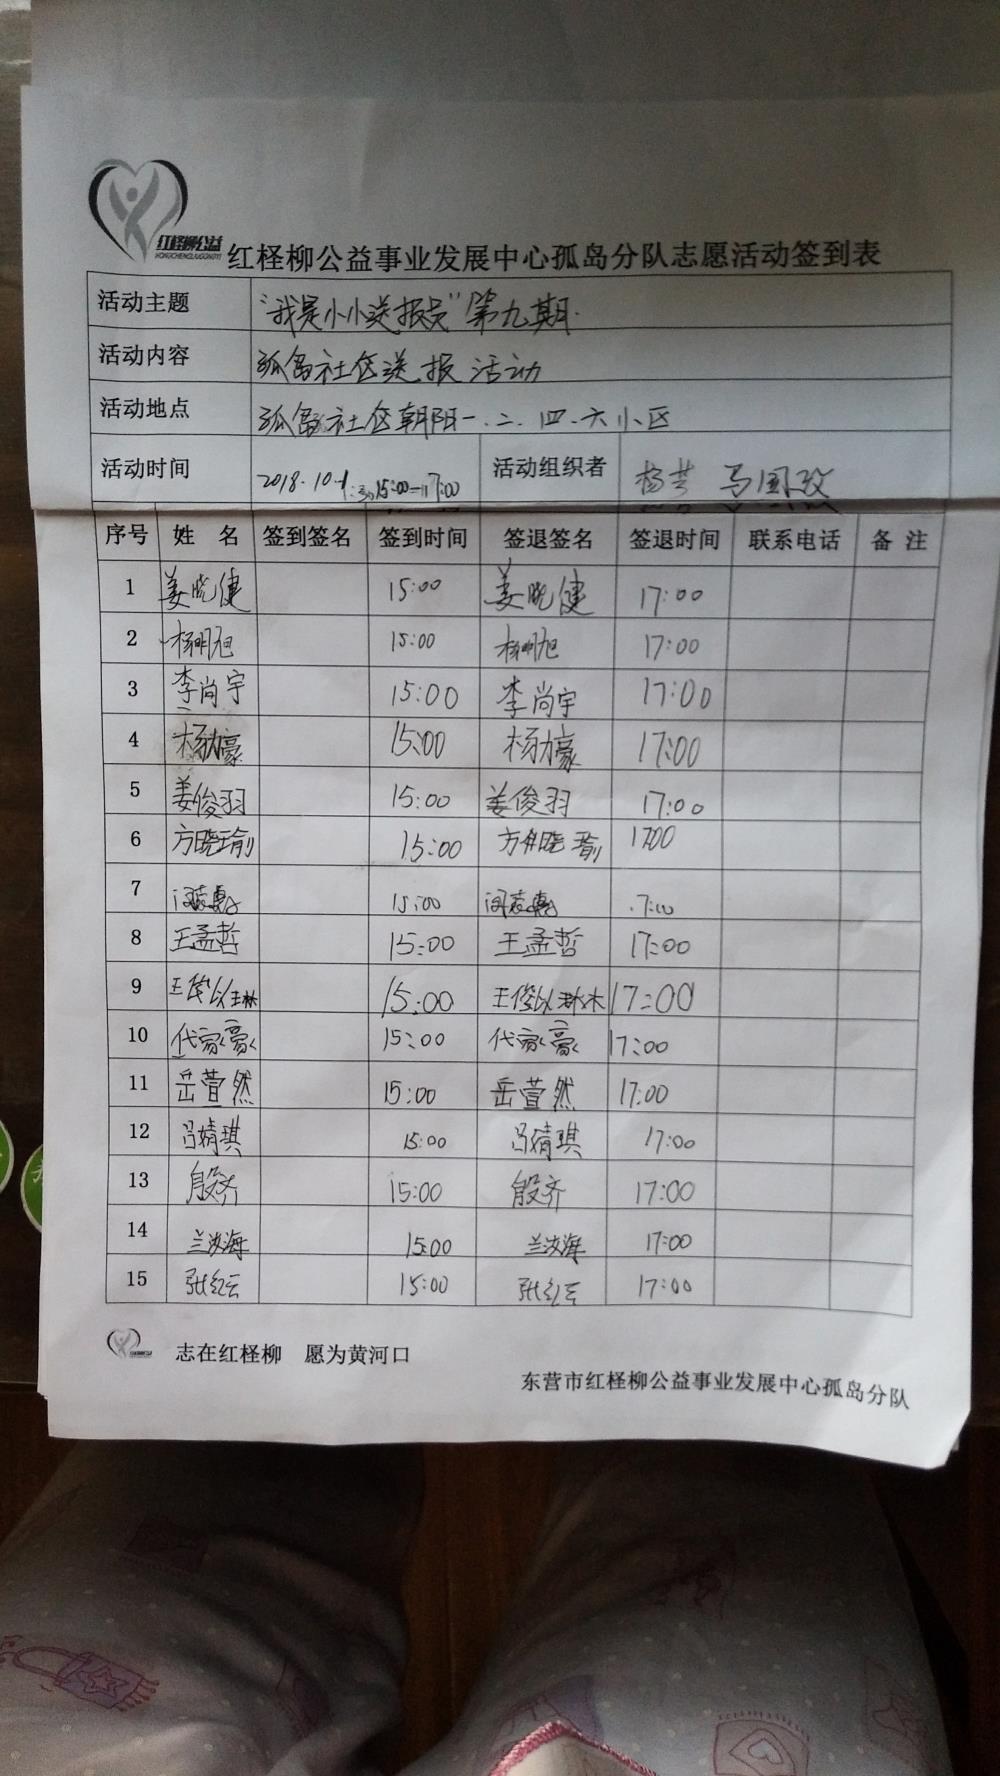 红柽柳公益
HONGCHENGLIUGONGYI
红柽柳公益事业发展中心孤岛分队志愿活动签到表
活动主题 “我是小小送报员”第九期.
活动内容 孤岛社区送报活动
活动地点 孤岛社区朝阳一.二.四.六小区
活动时间 2018.10.1 15:00—17:00 活动组织者 杨芸 马国政
序号 姓 名 签到签名 签到时间 签退签名 签退时间 联系电话 备 注
1 姜晓健 15:00 姜晓健 17:00
2 杨明旭 15:00 杨明旭 17:00
3 李尚宇 15:00 李尚宇 17:00
4 杨力豪 15:00 杨力豪 17:00
5 姜俊羽 15:00 姜俊羽 17:00
6 方晓瑜 15:00 方晓瑜 1700
7 15:00 7:00
8 王孟哲 15:00 王孟哲 17:00
9 15:00 17:00
10 代家豪 15:00 代家豪 17:00
11 岳萱然 15:00 岳萱然 17:00
12 吕婧琪 15:00 吕婧琪 17:00
13 殷齐 15:00 殷齐 17:00
14 兰汝海 15:00 兰汝海 17:00
15 张红云 15:00 张红云 17:00
志在红柽柳 愿为黄河口
东营市红柽柳公益事业发展中心孤岛分队